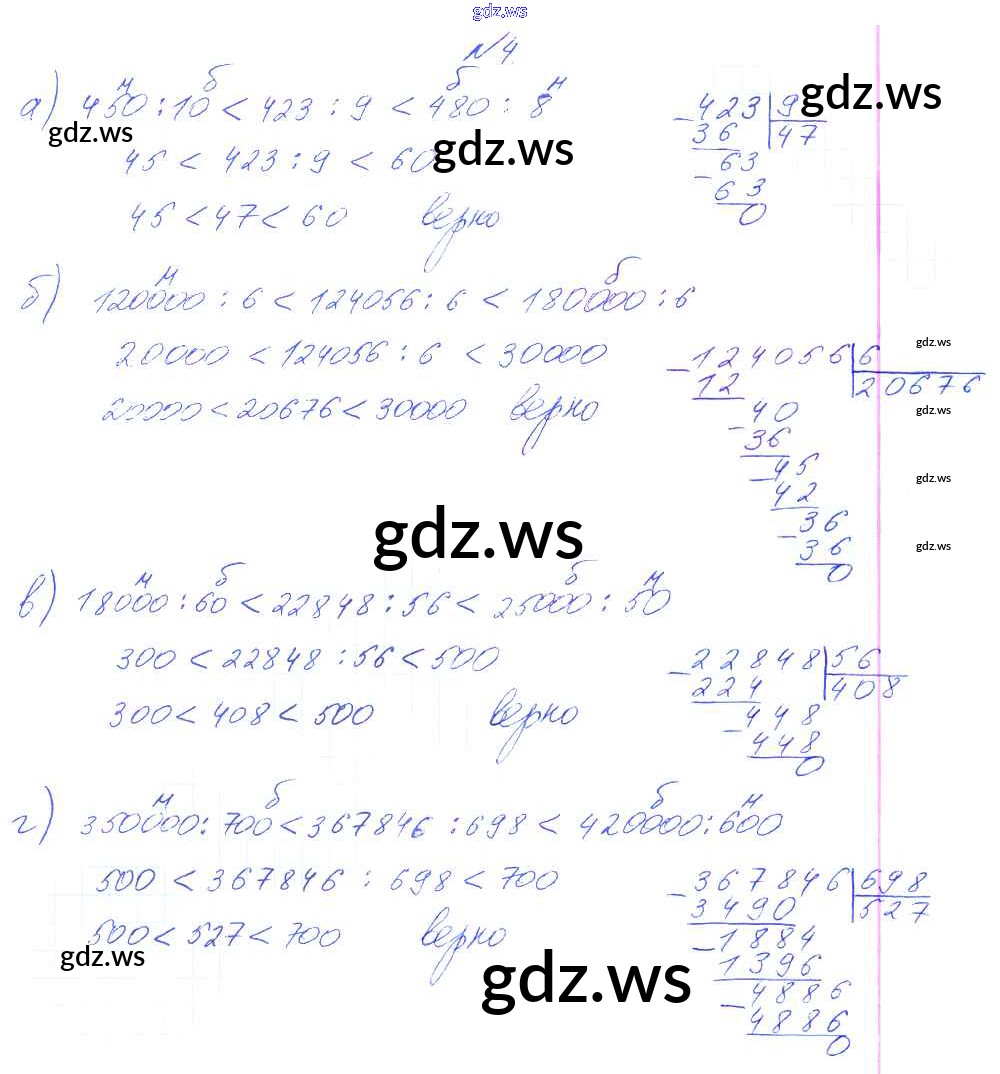 gdz.ws
№4
а) 450 : 10 < 423 : 9 < 480 : 8
м б б м
45 < 423 : 9 < 60
45 < 47 < 60 верно
423 | 9
36 | 47
63
63
0
gdz.ws
gdz.ws
gdz.ws
б) 120000 : 6 < 124056 : 6 < 180000 : 6
м б
20000 < 124056 : 6 < 30000
20000 < 20676 < 30000 верно
124056 | 6
12 | 20676
40
36
45
42
36
36
0
gdz.ws
gdz.ws
gdz.ws
gdz.ws
gdz.ws
в) 18000 : 60 < 22848 : 56 < 25000 : 50
м б б м
300 < 22848 : 56 < 500
300 < 408 < 500 верно
22848 | 56
224 | 408
448
448
0
г) 350000 : 700 < 367846 : 698 < 420000 : 600
м б б м
500 < 367846 : 698 < 700
500 < 527 < 700 верно
367846 | 698
3490 | 527
1884
1396
4886
4886
0
gdz.ws
gdz.ws